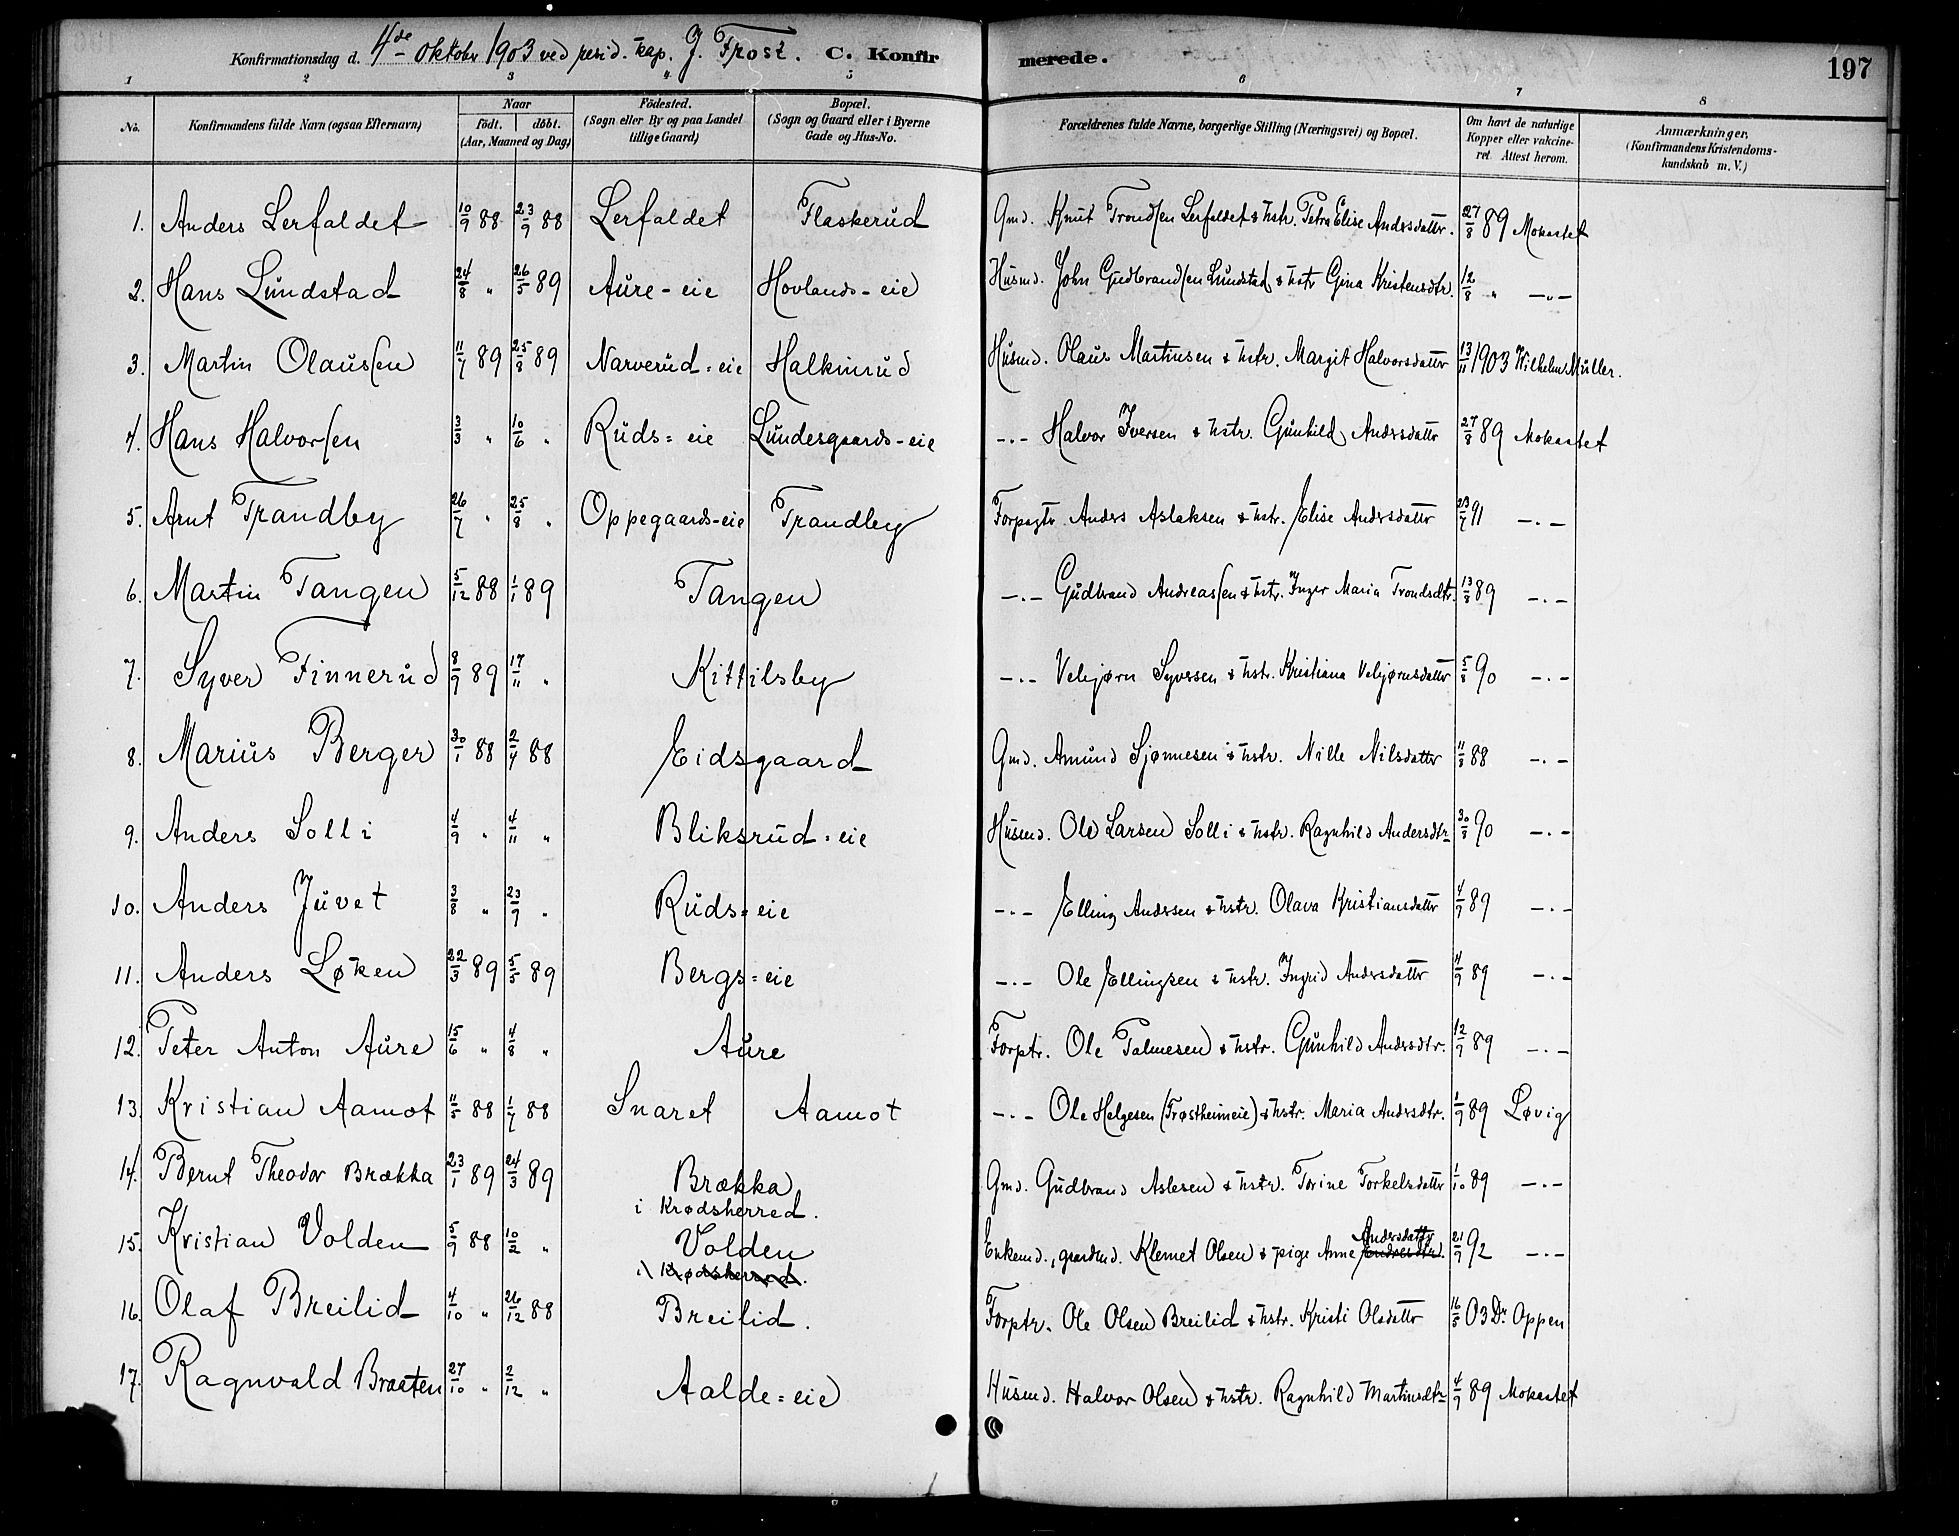 Konfirmationsdag d. 4de Oktober 1903 ved resid. kap. J. Frost. C. Konfirmerede. 197
1 2 3 " 5 6 7 8
No. Konfirmandens fulde Navn (ogsaa Efternavn) Naar født. døbt. (Aar, Maaned og Dag) Fødested. (Sogn eller By og paa Landet tillige Gaard) Bopæl. (Sogn og Gaard eller i Byerne Gade og Hus-No. Forældrenes fulde Navne, borgerlige Stilling (Næringsvei) og Bopæl. Om havt de naturlige Kopper eller vakcineret. Attest herom. Anmærkninger. (Konfirmandens Kristendomskundskab m. V.)
1. Anders Lerfaldet 10/9 88 23/9 88 Lerfaldet Flaskerud Gmd. Knut Trondsen Lerfaldet & hstr. Petra Elise Andersdattr. 27/8 89 Mokastet
2. Hans Lundstad 24/8 " 26/5 89 Aure-eie Hovlands-eie Husmd. John Gudbrandsen Lundstad & hstr Gina Kristensdtr. 12/8 " -"-
3. Martin Olaussen 11/7 89 25/8 89 Narverud=eie Halkinrud Husmd. Olaus Martinsen & hstr. Margit Halvorsdattr 13/11 1903 Wilhelm Müller.
4. Hans Halvorsen 3/3 " 10/6 " Ruds=eie Lundesgaards-eie -"- Halvor Iversen & hstr. Gunhild Andersdattr 27/8 89 Mokastet
5. Arnt Trandby 26/7 " 25/8 " Oppegaards-eie Trandby Forpagtr. Anders Aslaksen & hstr. Elise Andersdattr 23/7 91 -"-
6. Martin Tangen 5/12 88 1/1 89 Tangen -"- Gudbrand Andreassen & hstr. Inger Maria Trondsdtr. 13/8 89 -"-
7. Syver Finnerud 8/9 89 17/11 " Kittilsby -"- Vebjørn Syversen & hstr. Kristiana Vebjørnsdattr 5/8 90 -"-
8. Marius Berger 30/1 88 2/4 88 Eidsgaard Gmd. Amund Sjønnesen & hstr. Nille Nilsdattr 11/8 88 -"-
9. Anders Solli 4/9 " 4/11 " Bliksrud=eie Husmd. Ole Larsen Solli & hstr. Ragnhild Andersdtr 30/8 90 -"-
10. Anders Juvet 3/8 " 23/9 " Ruds=eie -"- Elling Andersen & hstr. Olava Kristiansdattr 4/9 89 -"-
11. Anders Løken 22/3 89 5/5 89 Bergs=eie -"- Ole Ellingsen & hstr. Ingrid Andersdattr 4/9 89 -"-
12. Peter Anton Aure 15/6 " 4/8 " Aure Forptr. Ole Palmesen & hstr. Gunhild Andersdtr. 12/9 89 -"-
13. Kristian Aamot 11/5 88 1/7 88 Snaret Aamot -"- Ole Helgesen (Frøstheimeie) & hstr. Maria Andersdtr. 1/9 89 Løvig
14. Bernt Theodor Brækka 23/1 89 24/3 89 Brækka i Krødsherred. Gmd. Gudbrand Aslesen & hstr. Torine Torkelsdattr 1/10 89 -"-
15. Kristian Volden 5/9 88 10/2 " Volden i Krødsherred. Enkemd., gaardmd. Klemet Olsen & pige Anne Andersdattr 21/9 92 -"-
16. Olaf Breilid 4/10 " 26/12 88 Breilid. Forptr. Ole Olsen Breilid & hstr. Kristi Olsdattr 16/5 03 Dr. Oppen
17. Ragnvald Braaten 27/10 " 2/12 " Aalde=eie Husmd. Halvor Olsen & hstr. Ragnhild Martinsdtr 4/9 89 Mokastet